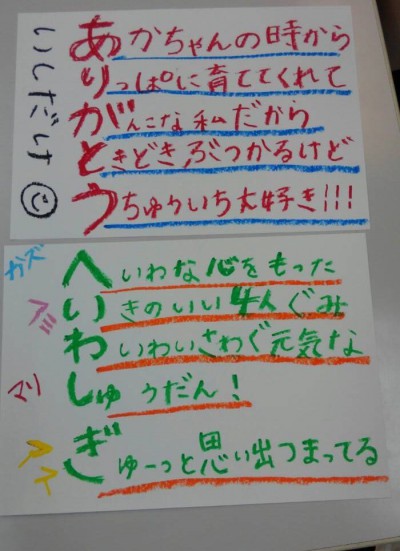 いしだけ
あかちゃんの時から
りっぱに育ててくれて
がんこな私だから
ときどきぶつかるけど
うちゅういち大好き!!!
カズ
ブジ
マリ
アイ
へいわな心をもった
いきのいい4人ぐみ
わいわいさわぐ元気な
しゅうだん!
ぎゅーっと思い出つまってる